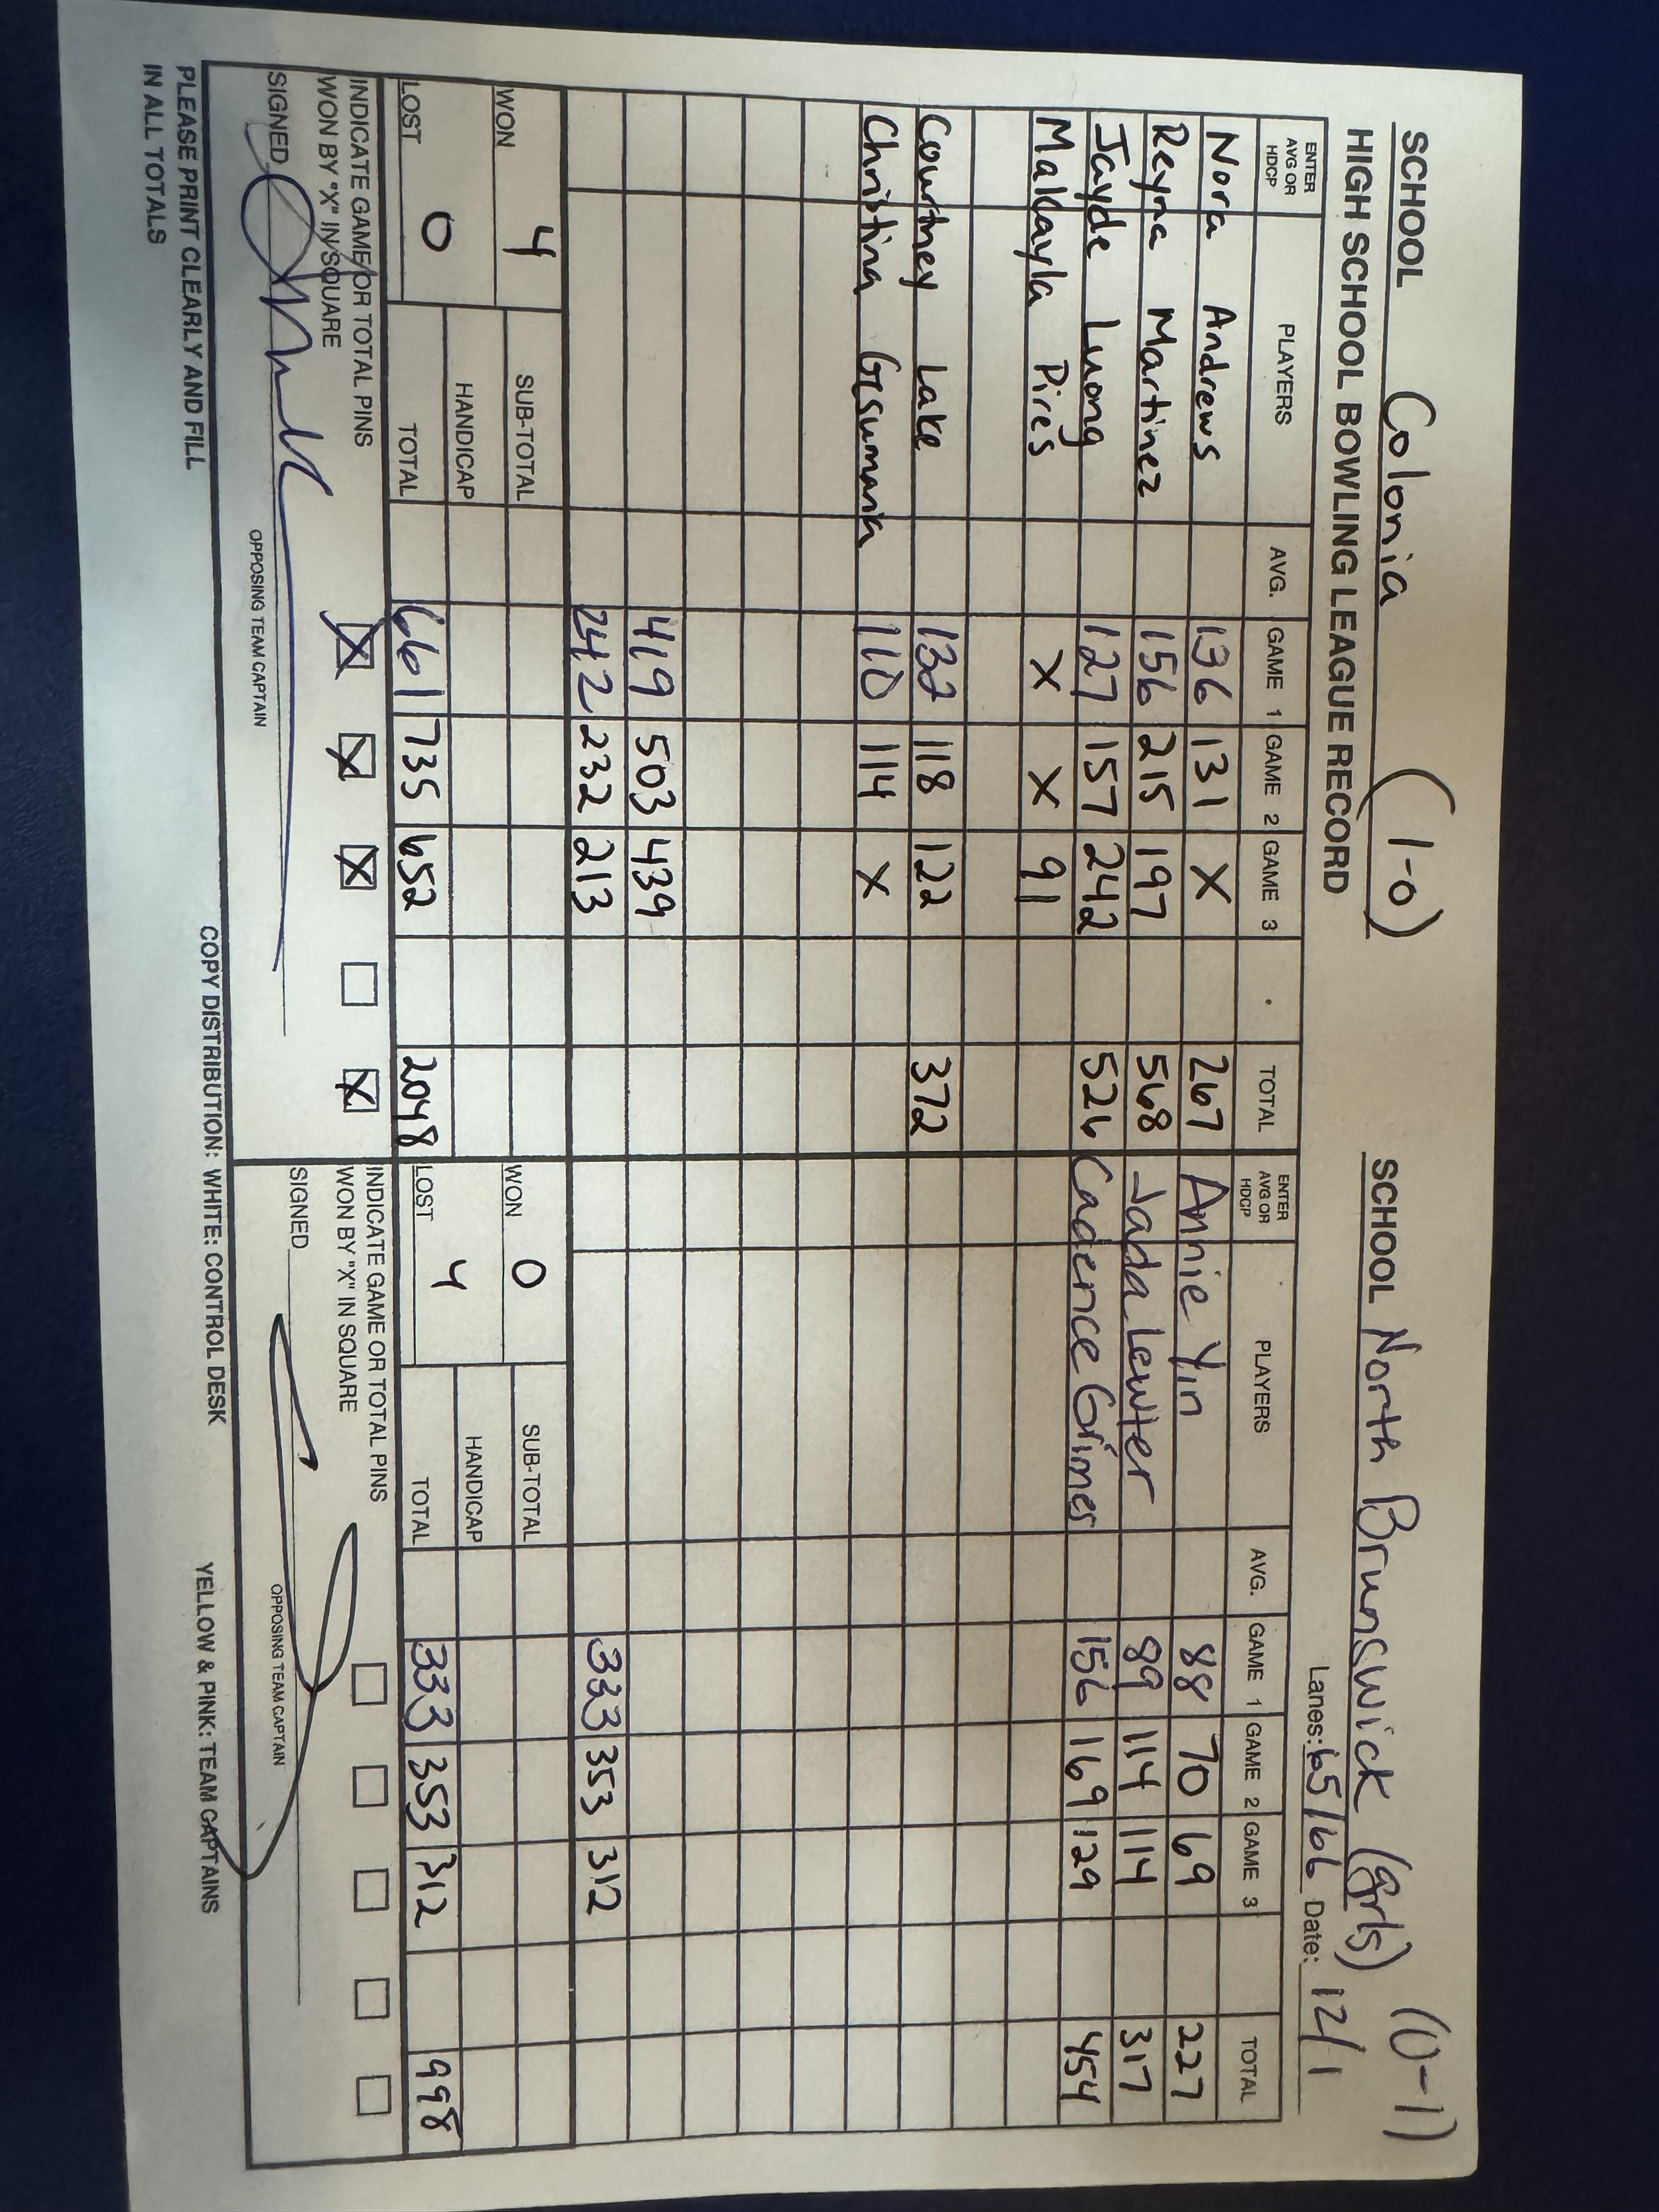 SCHOOL Colonia (1-0)
SCHOOL North Brunswick (Girls) (0-1)
HIGH SCHOOL BOWLING LEAGUE RECORD
Lanes: 65/66 Date: 12/1
ENTER AVG OR HDCP PLAYERS AVG. GAME 1 GAME 2 GAME 3 . TOTAL
Nora Andrews 136 131 X 267
Reyna Martinez 156 215 197 568
Jayde Luong 127 157 242 526
Makayla Pires X X 91
Courtney Lake 132 118 122 372
Christina Gesumaria 110 114 X
419 503 439
242 232 213
WON 4
LOST 0
SUB-TOTAL
HANDICAP
TOTAL 661 735 652 2048
INDICATE GAME OR TOTAL PINS
WON BY "X" IN SQUARE X X X X
SIGNED
OPPOSING TEAM CAPTAIN
ENTER AVG OR HDCP PLAYERS AVG. GAME 1 GAME 2 GAME 3 TOTAL
Annie Yin 88 70 69 227
Jada Lewter 89 114 114 317
Cadence Grimes 156 169 129 454
333 353 312
WON 0
LOST 4
SUB-TOTAL
HANDICAP
TOTAL 333 353 312 998
INDICATE GAME OR TOTAL PINS
WON BY "X" IN SQUARE
SIGNED
OPPOSING TEAM CAPTAIN
PLEASE PRINT CLEARLY AND FILL
IN ALL TOTALS
COPY DISTRIBUTION: WHITE: CONTROL DESK YELLOW & PINK: TEAM CAPTAINS